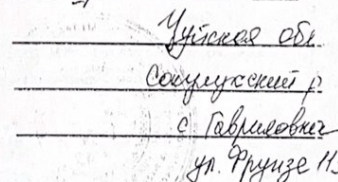 Чуйская обл
Сокулукский р
с Гавриловка
ул. Фрунзе 113